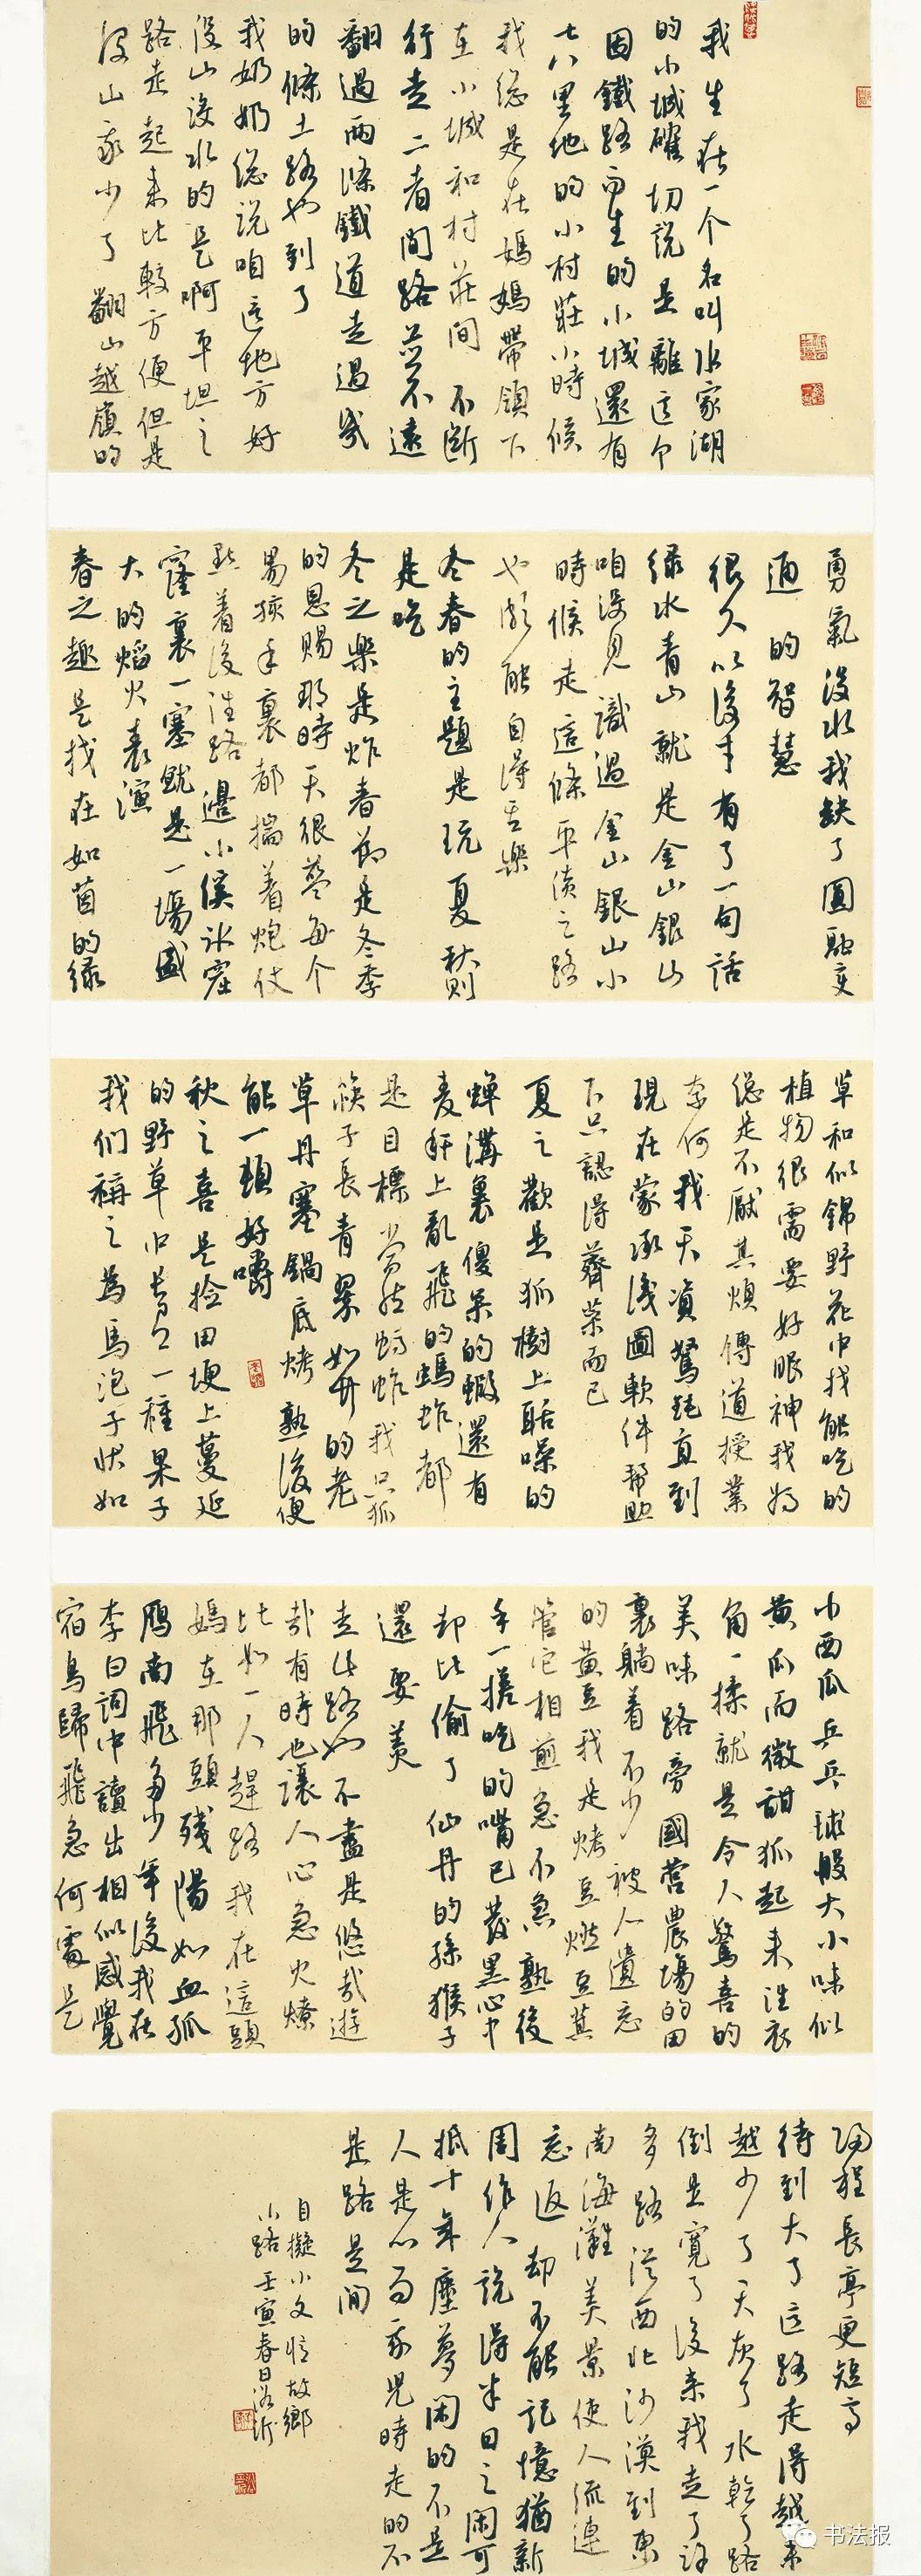 我生在一个名叫水家湖
的小城確切説是離这个
因鐵路而生的小城還有
七八里地的小村莊小時候
我總是在媽媽帶領下
在小城和村莊間不斷
行走二者間路並不遠
翻過兩條鐵道走過幾
的條土路也到了
我奶奶總説咱这地方好
没山没水的是啊平坦之
路走起来比較方便但是
没山我少了翻山越嶺的
勇氣没水我缺了圓融变
通的智慧
很久以後才有了一句話
緑水青山就是金山銀山
咱没見識過金山銀山小
時候走這條平淡之路
也頗能自得其樂
冬春的主題是玩夏秋則
是吃
冬之樂是炸春節是冬季
的恩賜那時天很藍每个
男孩手裏都揣着炮仗
點着後往路邊小溪冰窟
窿裏一塞就是一場盛
大的焰火表演
春之趣是找在如茵的緑
草和似錦野花中找能吃的
植物很需要好眼神我媽
總是不厭其煩傳道授業
奈何我天資駑鈍直到
現在蒙承淺圖軟件幫助
下只認得薺菜而已
夏之歡是狐樹上聒噪的
蟬溝裏傻呆的蝦還有
麦秆上亂飛的螞蚱都
是目標當然螞蚱我只狐
筷子長青翠如竹的老
草丹塞鍋底烤熟後便
能一頓好嚼
秋之喜是捡田埂上蔓延
的野草中長有一種果子
我们稱之為馬泡子状如
小西瓜乒乓球般大小味似
黄瓜而微甜狐起来往衣
角一揉就是令人驚喜的
美味路旁國营農場的田
裏躺着不少被人遺忘
的黄豆我是烤豆燃豆萁
管它相煎急不急熟後
手一搓吃的嘴巴發黑心中
却比偷了仙丹的孫猴子
還要美
走此路如不盡是悠哉遊
哉有時也讓人心急火燎
比如一人趕路我在這頭
媽在那頭殘陽如血孤
雁南飛多少年後我在
李白詞中讀出相似感覺
宿鳥歸飛急何處是
归程長亭更短亭
待到大了这路走得越来
越少了天灰了水乾了路
倒是寬了後来我走了许
多路從西北沙漠到東
南海灘美景使人流連
忘返却不能記憶猶新
周作人説得半日之閑可
抵十年塵夢閑的不是
人是心而我兒時走的不
是路是閒
自擬小文憶故鄉
小路壬寅春日洺圻
书法报